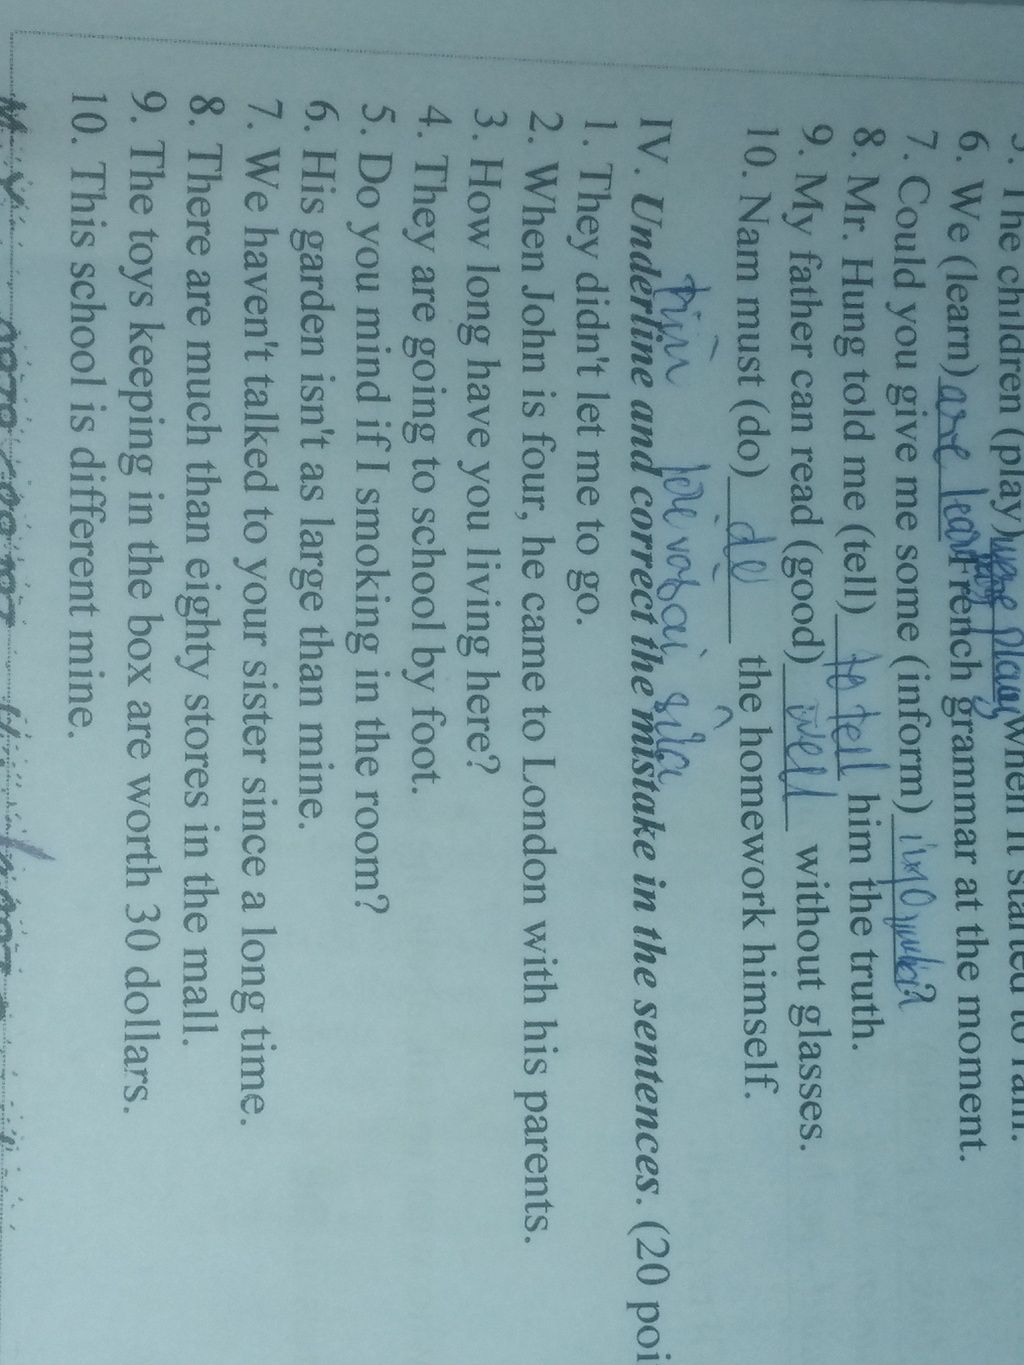 The children (play) were playing when it started to rain.
6. We (learn) are learn French grammar at the moment.
7. Could you give me some (inform) ?
8. Mr. Hung told me (tell) to tell him the truth.
9. My father can read (good) well without glasses.
10. Nam must (do) do the homework himself.
tìm lỗi và sai sửa
IV. Underline and correct the mistake in the sentences. (20 poi
1. They didn't let me to go.
2. When John is four, he came to London with his parents.
3. How long have you living here?
4. They are going to school by foot.
5. Do you mind if I smoking in the room?
6. His garden isn't as large than mine.
7. We haven't talked to your sister since a long time.
8. There are much than eighty stores in the mall.
9. The toys keeping in the box are worth 30 dollars.
10. This school is different mine.